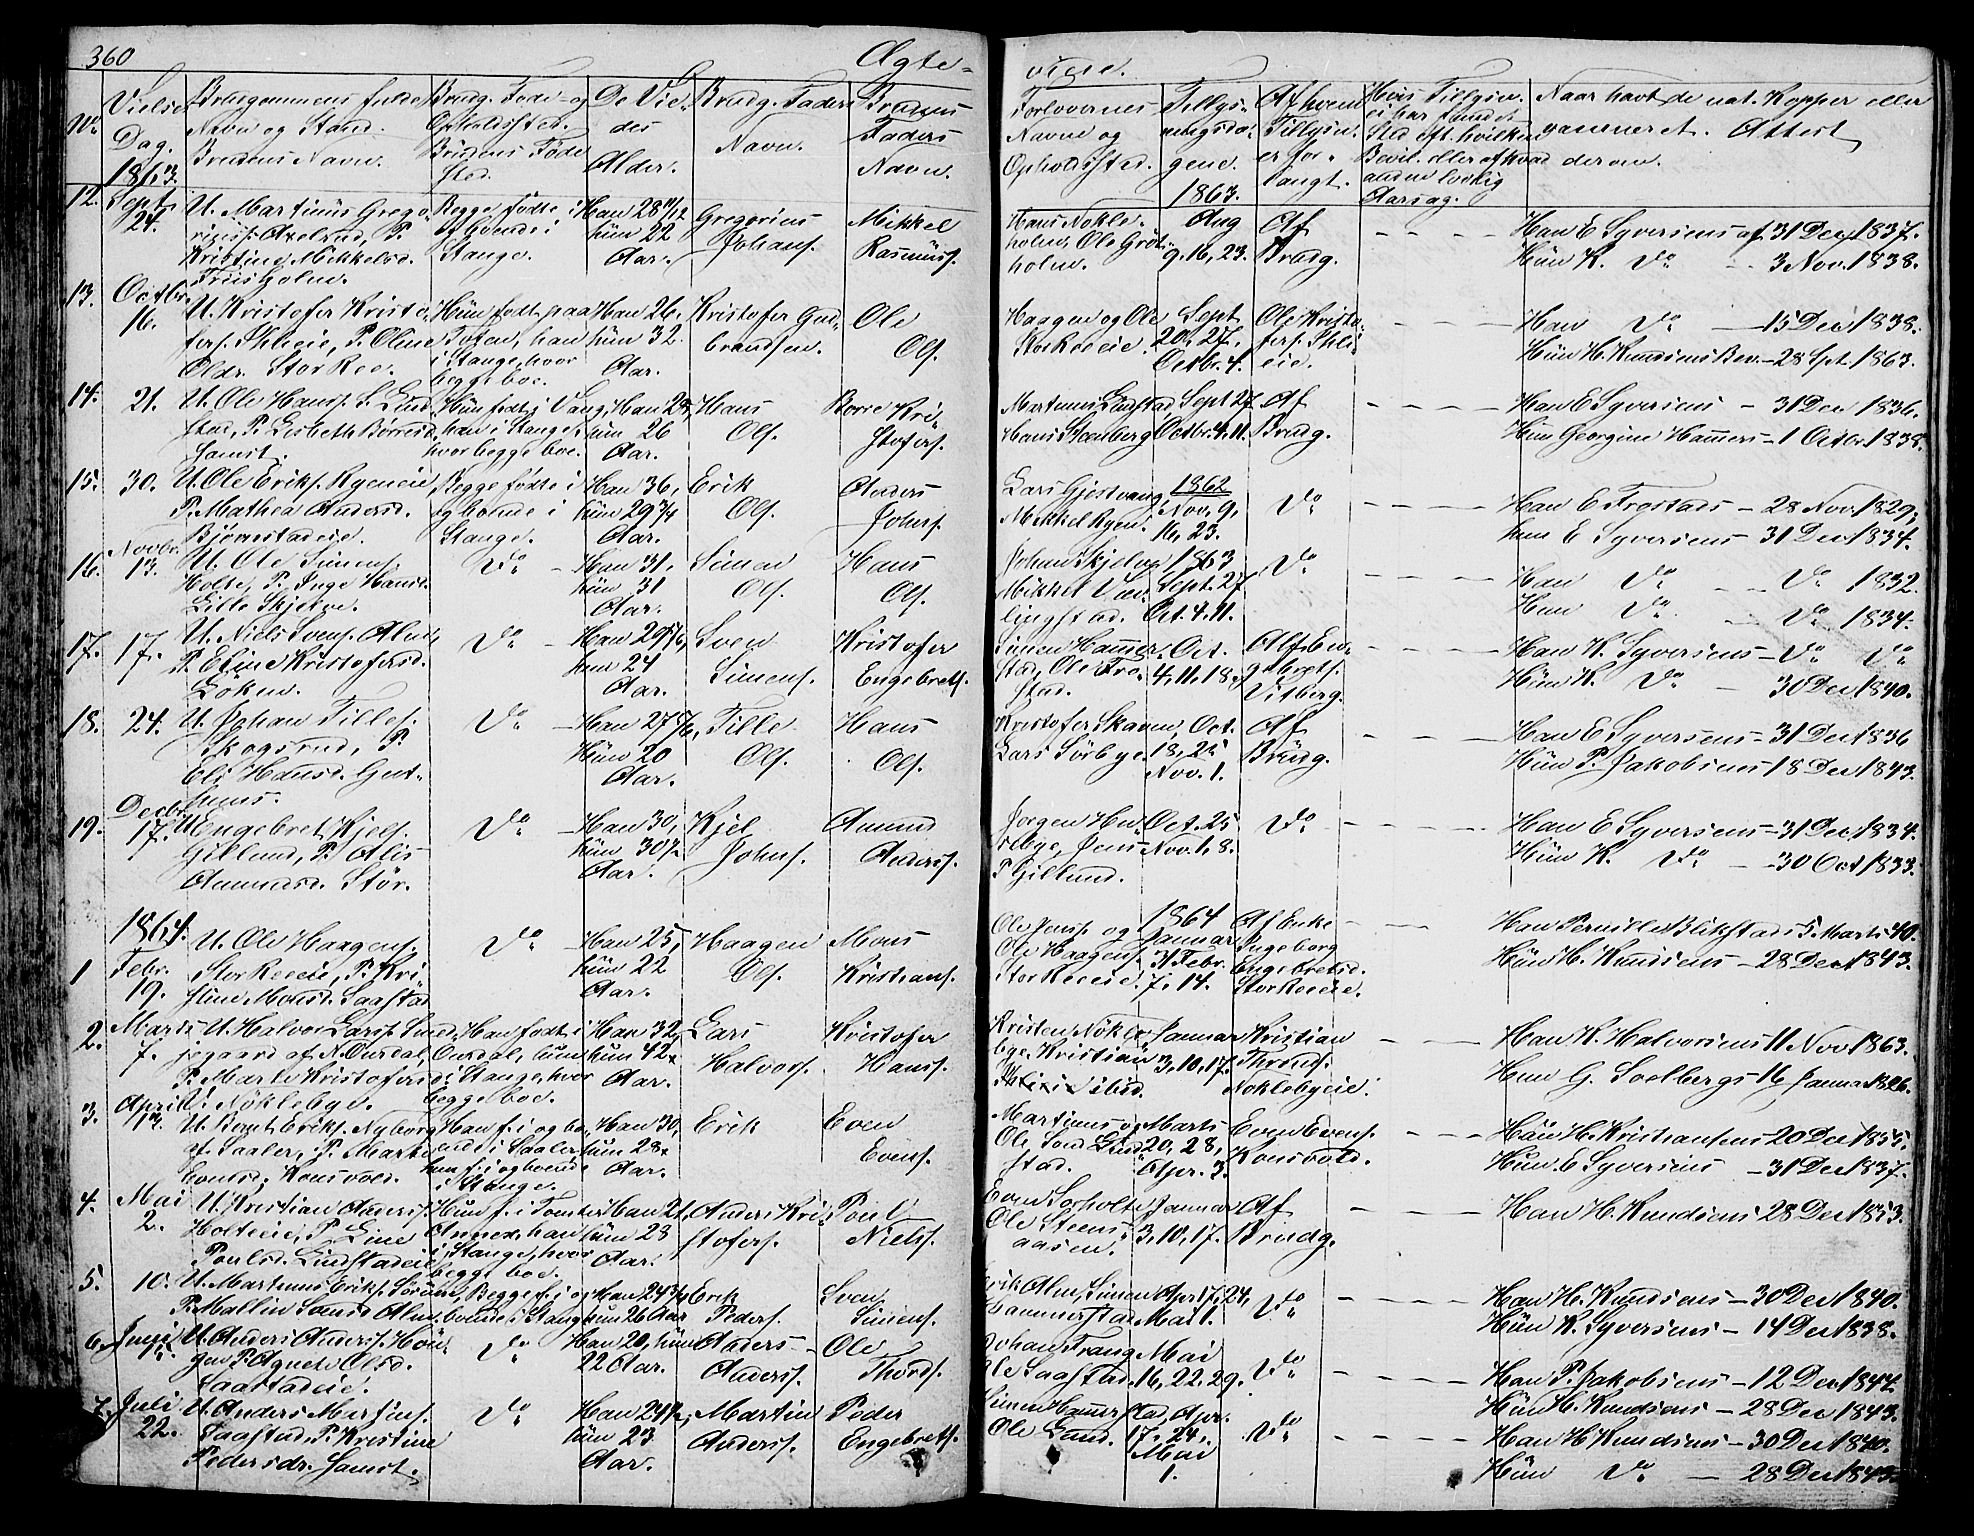 360
Ægte-
viede.
No.
Vielses
Dag.
1863.
Brudgommens fulde
Navn og Stand.
Brudens Navn.
Brudg. Føde- og
Opholdssted.
Brudens Føde
sted.
De Vie-
des
Alder.
Brudg. Faders
Navn.
Brudens
Faders
Navn.
Forlovernes
Navne og
Opholdssted.
Tillys-
ningsda-
gene.
1863.
Af hvem
Tillysn.
er for-
langt.
Hvis Tillysn.
ei har fundet
Sted eft. hvilken
Bevil. eller af hvad
anden lovlig
Aarsag.
Naar havt de nat. Kopper eller
vaccineret. Attest
derom.
12.
Sept.
24.
U. Martinus Grego-
riuss. Axelrud, P.
Kristine Mikkelsd.
Friisholm.
Begge fødte i
og boende i
Stange.
Han 28 11/12
hun 22
Aar.
Gregorius
Johans.
Mikkel
Rasmuss.
Hans Nokle-
holm, Ole Grøt-
holm.
Aug
9. 16, 23.
Af
Brudg.
Han E Syversens af 31 Dec 1837.
Hun K. Do - 3 Nov. 1838.
13.
Octbr.
16.
U. Kristofer Kristo-
fers. Shlieie, P. Oline
Olsdr. Stor Ree.
Hun født paa
Toten, han
i Stange, hvor
begge boe.
Han 26.
hun 32.
Aar.
Kristofer Gud-
brandsen.
Ole
Ols.
Haagen og Ole
Storreeie.
Sept.
20, 27.
Octbr. 4.
Ole Kristo-
fers. Shli-
eie.
Han Do - 15 Dec 1838.
Hun H. Knudsens Bev. - 28 Spt. 1863.
14.
21.
U. Ole Hanss. S. Lund
stad, P. Lisbeth Børresd.
Samst.
Hun født i Vang,
han i Stange,
hvor begge boe.
Han 28,
hun 26
Aar.
Hans
Ols.
Borre Kri-
stofers.
Martinus Lundstad,
Hans Steenberg
Sept 27
Octbr. 4. 11.
Af
Brudg.
Han E Syversens - 31 Dec 1836.
Hun Georgine Hamers - 1 Octbr. 1838.
15.
30.
U. Ole Eriks. Ryeneie
P. Mathea Andersd.
Bjørnstadeie.
Begge fødte i
og boende i
Stange.
Han 36,
hun 29 3/4
Aar.
Erik
Ols.
Anders
Johns.
Lars Gjestvang,
Mikkel Ryen.
1862
Nov. 9,
16, 23.
Do
Han E Frostads - 28 Nov. 1829,
hun E Syversens 31 Dec 1834.
16.
Novbr.
13.
U. Ole Simens.
Holte, P. Inge Hansd.
Lille Skjelve.
Do
Han 31,
hun 31
Aar.
Simen
Ols.
Hans
Ols.
Johan Skjelve,
Mikkel Ven-
lingstad.
1863
Sept. 27
Oct. 4. 11.
Do
Han Do Do 1832.
Hun Do Do 1834.
17.
17.
U. Niels Svens. Alm,
P. Eline Kristofersd.
Løken.
Do
Han 29 5/6,
hun 24
Aar.
Sven
Simens.
Kristofer
Engebrets.
Simen Hamer-
stad, Ole Fro-
stad.
Oct.
4. 11. 18.
Alf En-
gebrets.
Vitberg.
Han K. Syversens - Do Do
Hun K. Do - 30 Dec 1840.
18.
24.
U. Johan Tilles.
Skogsrud, P.
Eli Hansd. Gut-
huus.
Do
Han 27 5/6,
Hun 20
Aar.
Tille
Ols.
Hans
Ols.
Kristofer Skaven,
Lars Sørbye.
Oct.
18, 25
Nov. 1.
Af
Brudg.
Han E Syversens - 31 Dec 1836
Hun P. Jakobsens 18 Dec 1843.
19.
Decbr
17.
U. Engebret Kjels.
Gillund, P. Alis
Amundsd. Stør.
Do
Han 30,
hun 30 1/2
Aar.
Kjel
Johns.
Amund
Anderss.
Jørgen Hu-
sebye, Jens
P Gillund.
Oct. 25
Nov. 1, 8.
Do
Han E Syversens - 31 Dec 1834.
Hun K. Do - 30 Oct 1833.
1864.
1
Febr.
19.
U. Ole Haagens.
Stor Reeeie, P. Kri-
stine Monsd. Saastad
Do
Han 25,
hun 22
Aar.
Haagen
Ols.
Mons
Kristians.
Ole Jenss. og
Ole Haagens.
Storreeeie.
1864
Januar
31 Febr.
7. 14.
Af Enke
Ingeborg
Engebretsd.
Storreeeie.
Han Pernille Blikstads 5 Marts 40.
Hun H. Knudsens - 28 Dec 1843.
2.
Marts
7.
U. Halvor Larss. Sme-
jegaard af N. Ourdal,
P. Marte Kristofersd.
Nøklebye.
Han født i
Ourdal, hun
i Stange, hvor
begge boe.
Han 32,
hun 42
Aar.
Lars
Halvors.
Kristofer
Hanss.
Kristen Nøkle-
bye, Kristian
ibid.
Januar
3, 10, 17.
Kristian
Thords.
Noklebyeie.
Han K. Halvorsens 11 Nov 1863.
Hun G. Soelbergs 16 Januar 1826.
3.
April
13.
U. Bernt Eriks. Nyborg
af Saaler, P. Marte
Evensd. Konsvold.
Han f. i og bo-
ende i Saaler,
hun f. i og boende
i Stange.
Han 30,
hun 28
Aar.
Erik
Even
Evens.
Martinus og
Ole Sond Lund-
stad.
Marts
20, 28,
Apr. 3.
Even Evens.
Konsvold.
Han H. Kristiansens 20 Dec 1855.
Hun E Syversens - 31 Dec 1837.
4.
Mai
2.
U. Kristian Anders.
Holteeie, P. Line
Poulsd. Lundstadeie
Hun f. i Tomter
Annex, han
i Stange, hvor
begge boe.
Han 21,
hun 28
Aar.
Anders Kri-
stofers.
Poul
Niels.
Even Sorholte,
Ole Steens-
aasen.
Januar
3, 10, 17.
Af
Brudg.
Han H. Knudsens 28 Dec 1843.
5.
10.
U. Martinus Eriks. Sørum,
P. Mallin Svensd Alm.
Begge f. i og
boende i Stange
Han 24 3/4
hun 26 Aar
Erik
Peders.
Sven
Simens.
Erik Alm, Simen
Hammerstad.
Apr. 17, 24,
Mai 1.
Do
Han H. Knudsens - 30 Dec 1840.
Hun K. Syversens - 14 Dec 1838.
6.
Juni
U. Anders Anderss. Høn-
gen P. Agnete Olsd.
Saastadeie.
Do
Han 20, hun
22 Aar.
Anders
Anderss.
Ole
Thords.
Johan Frang
Ole Saastad.
Mai
16, 22, 29.
Do
Han P. Jakobsens - 12 Dec 1844.
Hun H. Knudsens - 28 Dec 1843.
7.
Juli
22.
U. Anders Martins.
Faastad, P. Kristine
Pedersdr. Samst.
Do
Han 24 1/2,
hun 23
Aar.
Martin
Anderss.
Peder
Engebrets.
Simen Hamerstad,
Ole Lund.
Apr.
17, 24,
Mai
1.
Do
Han H Knudsens - 30 Dec 1840.
Hun Do - 28 Dec 1843.